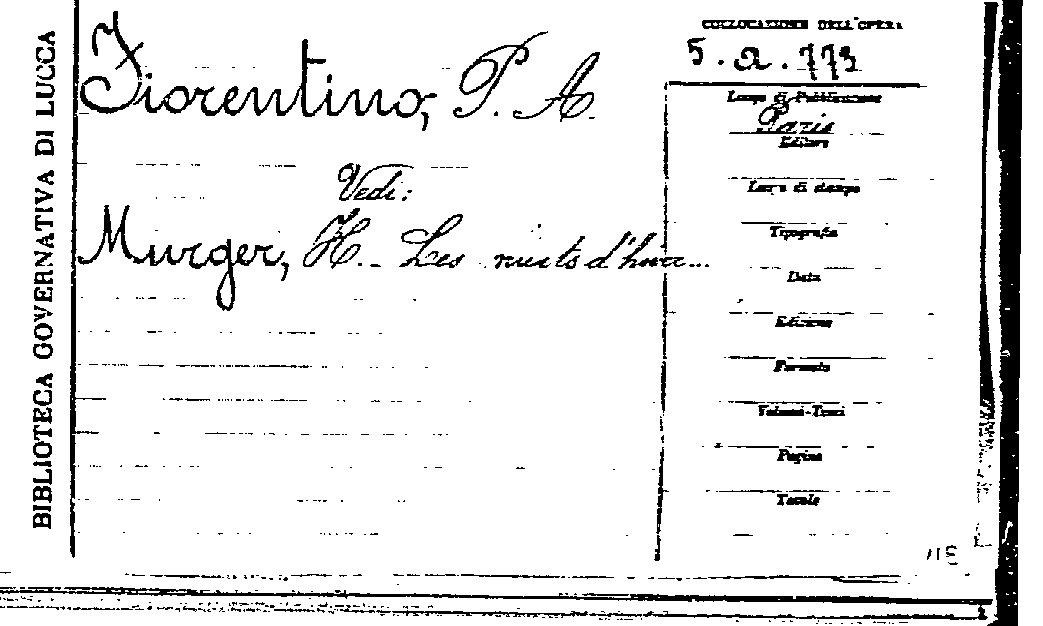 BIBLIOTECA GOVERNATIVA DI LUCCA
COLLOCAZIONE DELL'OPERA
5. a. 773
Fiorentino, P. A.
Vedi:
Murger, H. - Les nuits d'hiver...
Luogo di Pubblicazione
Paris
Editore
Luogo di stampa
Tipografia
Data
Edizione
Formato
Volumi-Tomi
Pagine
Tavole